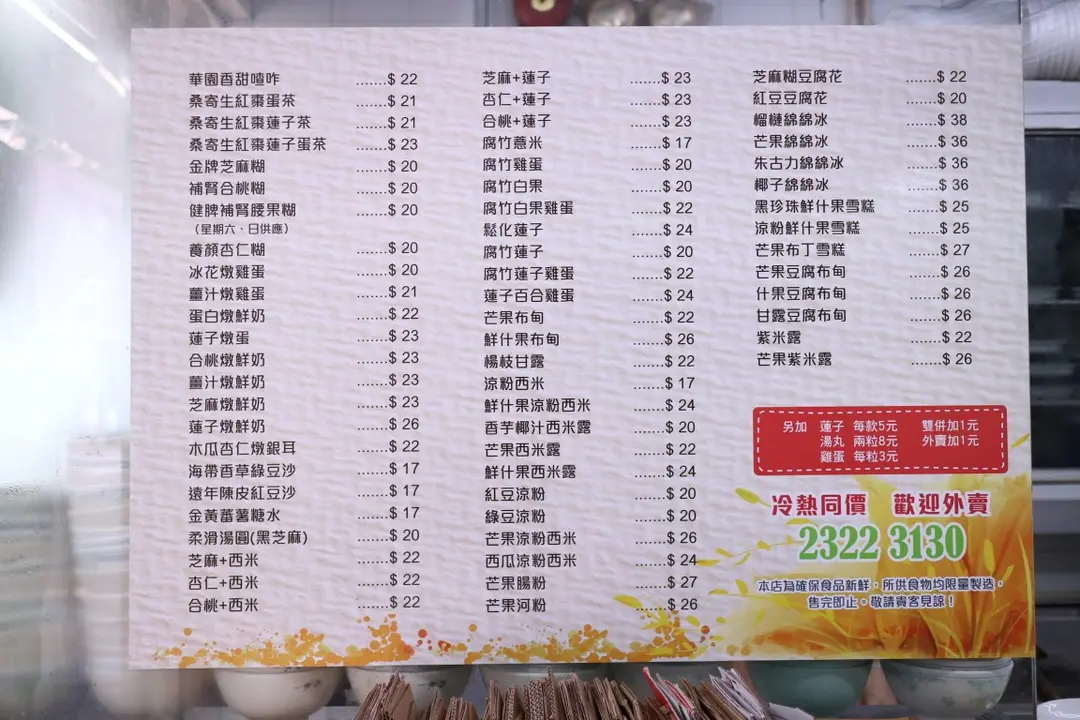 華園香甜喳咋 .......$ 22
桑寄生紅棗蛋茶 .......$ 21
桑寄生紅棗蓮子茶 .......$ 21
桑寄生紅棗蓮子蛋茶 .......$ 23
金牌芝麻糊 .......$ 20
補腎合桃糊 .......$ 20
健脾補腎腰果糊 .......$ 20
（星期六、日供應）
養顏杏仁糊 .......$ 20
冰花燉雞蛋 .......$ 20
薑汁燉雞蛋 .......$ 21
蛋白燉鮮奶 .......$ 22
蓮子燉蛋 .......$ 23
合桃燉鮮奶 .......$ 23
薑汁燉鮮奶 .......$ 23
芝麻燉鮮奶 .......$ 23
蓮子燉鮮奶 .......$ 26
木瓜杏仁燉銀耳 .......$ 22
海帶香草綠豆沙 .......$ 17
遠年陳皮紅豆沙 .......$ 17
金黃蕃薯糖水 .......$ 17
柔滑湯圓(黑芝麻) .......$ 20
芝麻+西米 .......$ 22
杏仁+西米 .......$ 22
合桃+西米 .......$ 22
芝麻+蓮子 .......$ 23
杏仁+蓮子 .......$ 23
合桃+蓮子 .......$ 23
腐竹薏米 .......$ 17
腐竹雞蛋 .......$ 20
腐竹白果 .......$ 20
腐竹白果雞蛋 .......$ 22
鬆化蓮子 .......$ 24
腐竹蓮子 .......$ 20
腐竹蓮子雞蛋 .......$ 22
蓮子百合雞蛋 .......$ 24
芒果布甸 .......$ 22
鮮什果布甸 .......$ 26
楊枝甘露 .......$ 22
涼粉西米 .......$ 17
鮮什果涼粉西米 .......$ 24
香芋椰汁西米露 .......$ 20
芒果西米露 .......$ 22
鮮什果西米露 .......$ 24
紅豆涼粉 .......$ 20
綠豆涼粉 .......$ 20
芒果涼粉西米 .......$ 26
西瓜涼粉西米 .......$ 24
芒果腸粉 .......$ 27
芒果河粉 .......$ 26
芝麻糊豆腐花 .......$ 22
紅豆豆腐花 .......$ 20
榴槤綿綿冰 .......$ 38
芒果綿綿冰 .......$ 36
朱古力綿綿冰 .......$ 36
椰子綿綿冰 .......$ 36
黑珍珠鮮什果雪糕 .......$ 25
涼粉鮮什果雪糕 .......$ 25
芒果布丁雪糕 .......$ 27
芒果豆腐布甸 .......$ 26
什果豆腐布甸 .......$ 26
甘露豆腐布甸 .......$ 26
紫米露 .......$ 22
芒果紫米露 .......$ 26
另加 蓮子 每款5元 雙併加1元
湯丸 兩粒8元 外賣加1元
雞蛋 每粒3元
冷熱同價 歡迎外賣
2322 3130
本店為確保食品新鮮，所供食物均限量製造，
售完即止。敬請貴客見諒！